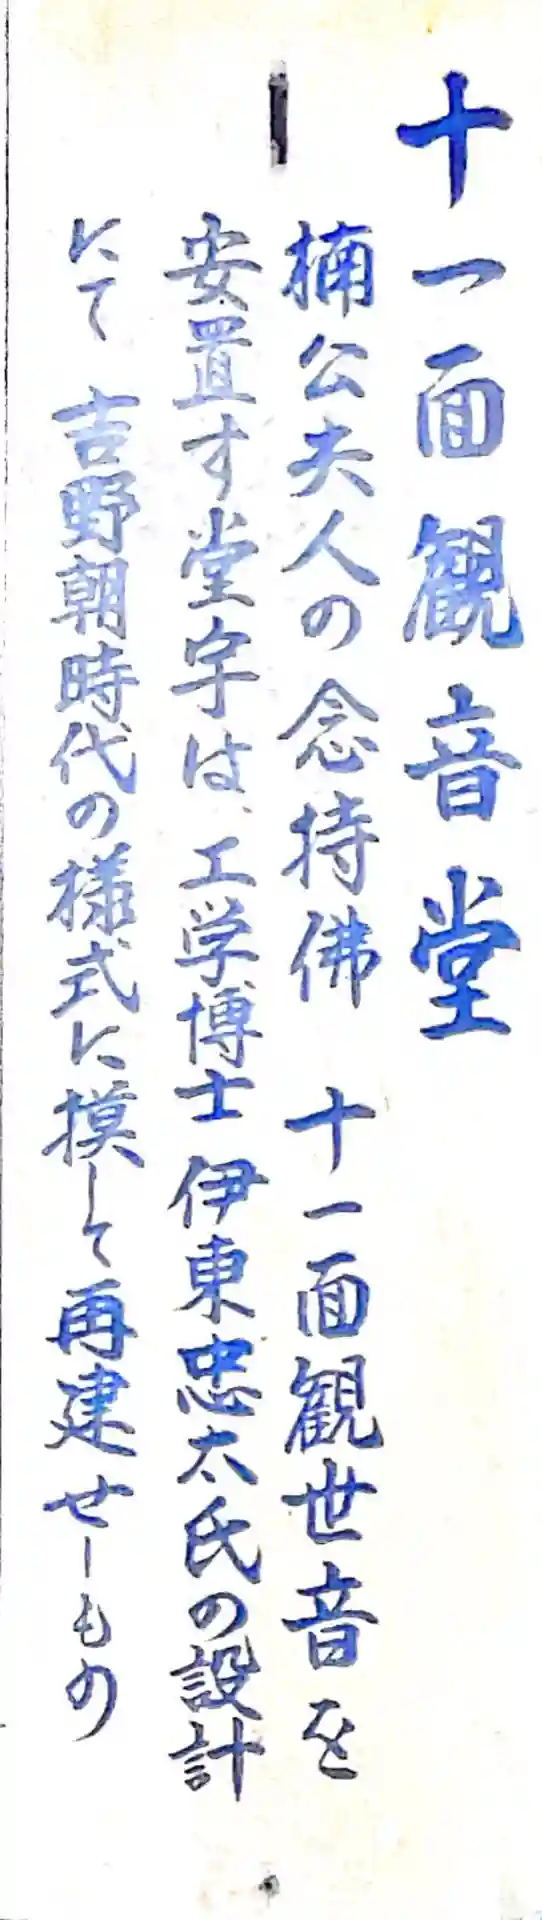 十一面観音堂
楠公夫人の念持佛 十一面観世音を
安置す堂宇は、工学博士 伊東忠太氏の設計
にて 吉野朝時代の様式に摸して再建せしもの